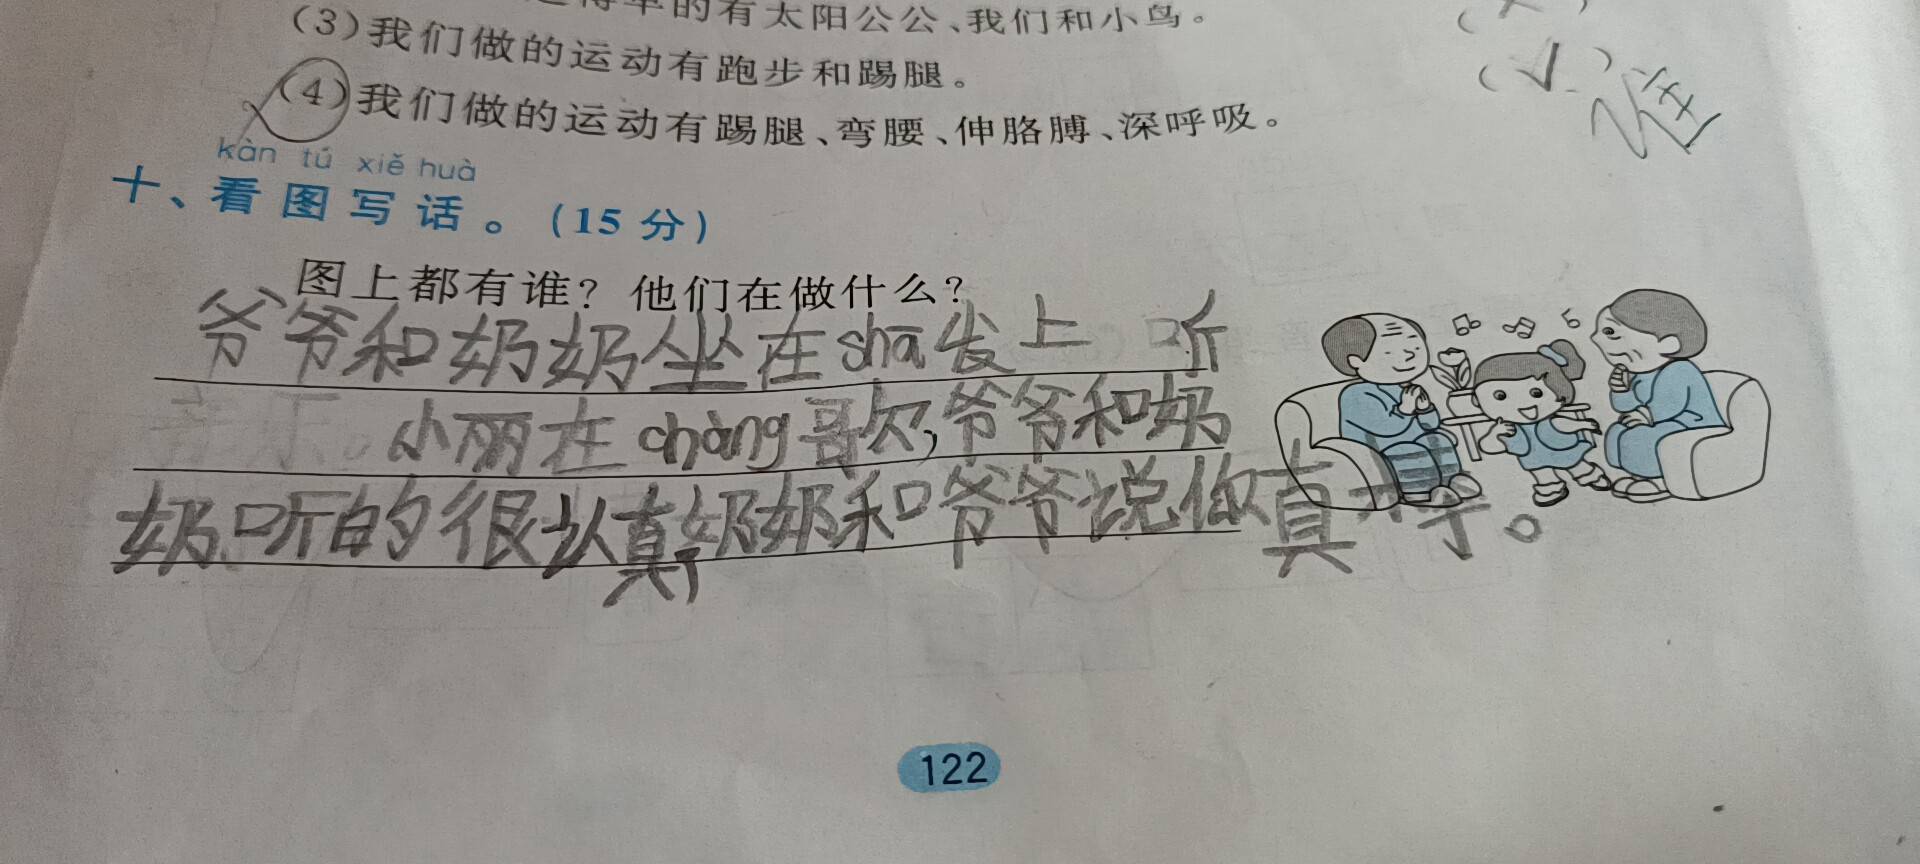 的有太阳公公、我们和小鸟。
(3)我们做的运动有跑步和踢腿。
(√)
(4)我们做的运动有踢腿、弯腰、伸胳膊、深呼吸。
kàn tú xiě huà
十、看图写话。(15分)
图上都有谁?他们在做什么?
爷爷和奶奶坐在shā发上 听
音乐。小丽在chàng哥欠,爷爷和奶
奶听的很认真了奶奶和爷爷说你真棒。
122